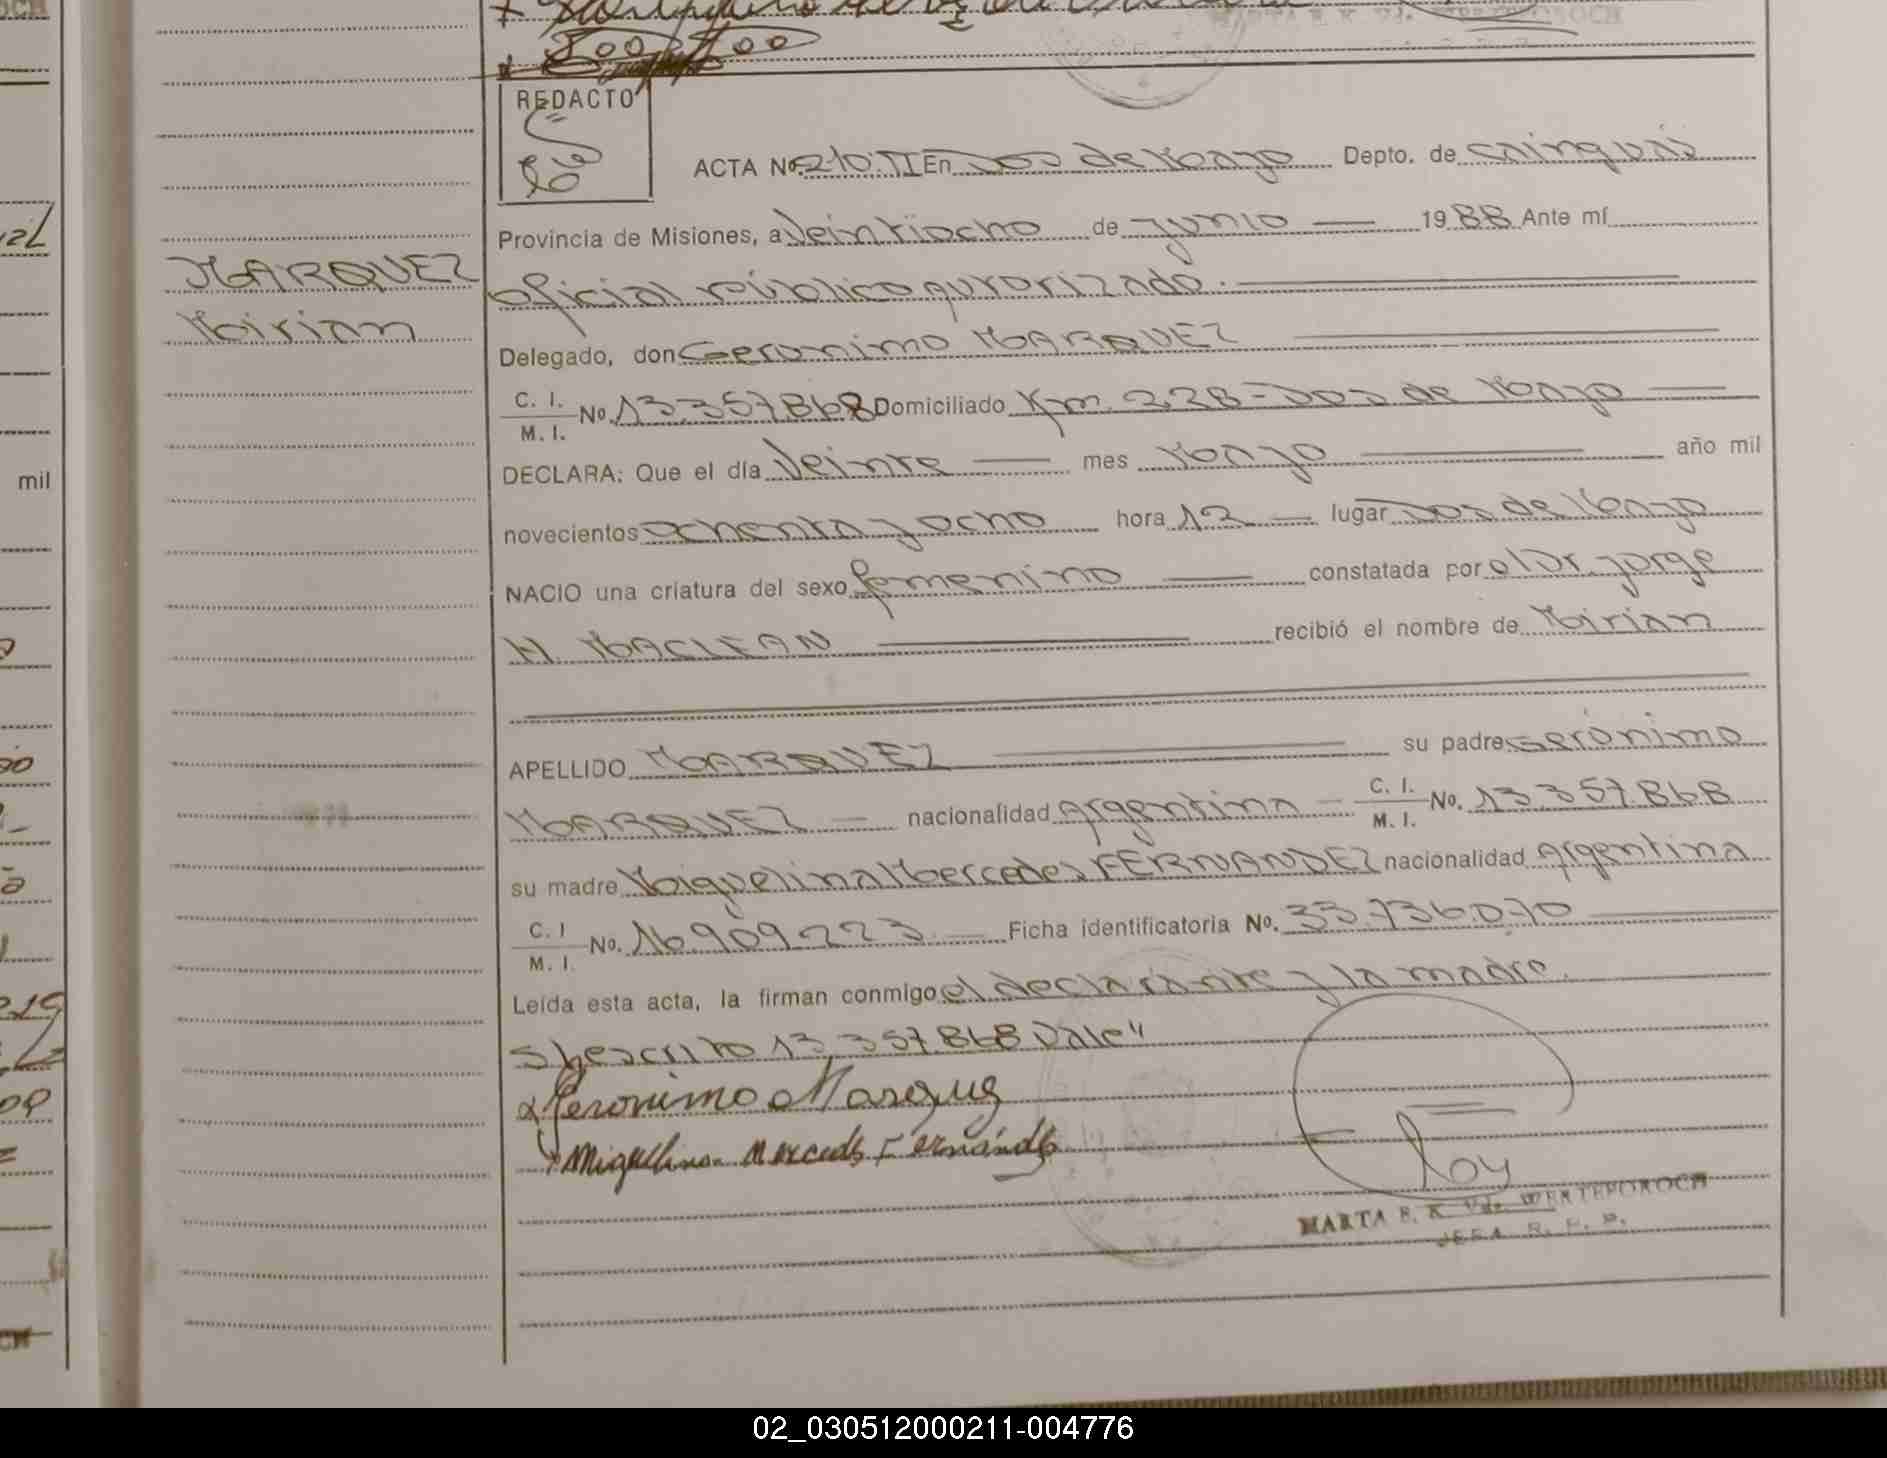 REDACTO
ACTA No. 210.TII En Dos de Mayo Depto. de Cainguás
Provincia de Misiones, a Veintiocho de Junio 1988 Ante mí
oficial público autorizado.
MARQUEZ
Mirian
Delegado, don Geronimo MARQUEZ
C. I. / M. I. No. 13357868 Domiciliado Km. 228 - Dos de Mayo
DECLARA: Que el día Veinte mes Mayo año mil
novecientos ochenta y ocho hora 12 lugar Dos de Mayo
NACIO una criatura del sexo femenino constatada por el Dr. Jorge
H. MACLEAN recibió el nombre de Mirian
APELLIDO MARQUEZ su padre Gerónimo
MARQUEZ nacionalidad Argentina C. I. / M. I. No. 13357868
su madre Miguelina Mercedes FERNANDEZ nacionalidad Argentina
C. I / M. I. No. 16909223 Ficha identificatoria No. 33.736.070
Leída esta acta, la firman conmigo el declarante y la madre.
13.357.868 Vale"
Geronimo Marquez
Miguelina Mercedes Fernández
MARTA E. K. Vd. WERTEPOROCH
JEFA R. P. P.
mil
02_030512000211-004776